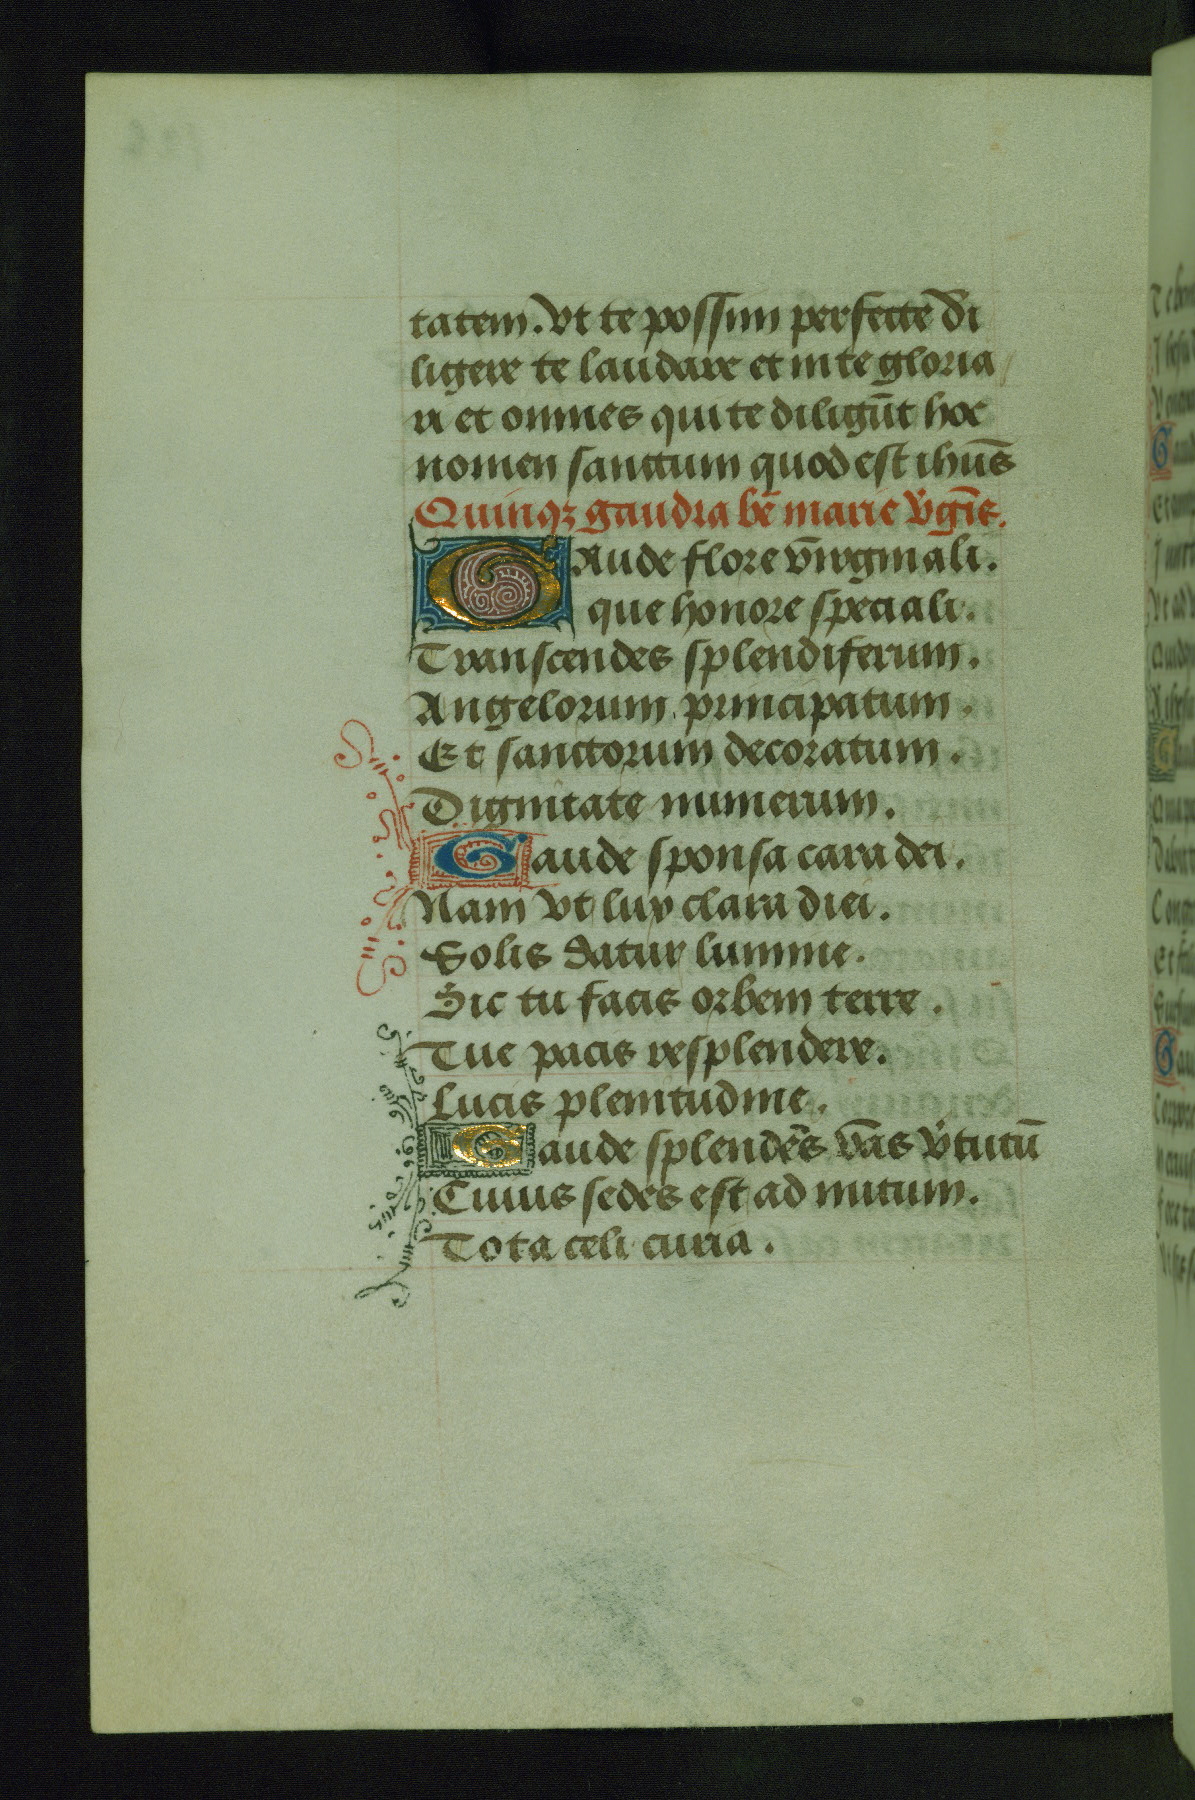 tatem. vt te possim perfecte di
ligere te laudare et in te gloria
ri et omnes qui te diligūt hoc
nomen sanctum quod est ihūs
Quinqz gaudia bē marie v̄gīs.
GAude flore virginali.
que honore speciali.
Transcendes splendiferum.
Angelorum principatum.
Et sanctorum decoratum.
Dignitate numerum.
Gaude sponsa cara dei.
Nam vt lux clara diei.
Solis datur lumine.
Sic tu facis orbem terre.
Tue pacis resplendere.
Lucis plenitudine.
Gaude splendēs vas v̄tutū
Cuius sedes est ad nutum.
Tota celi curia.